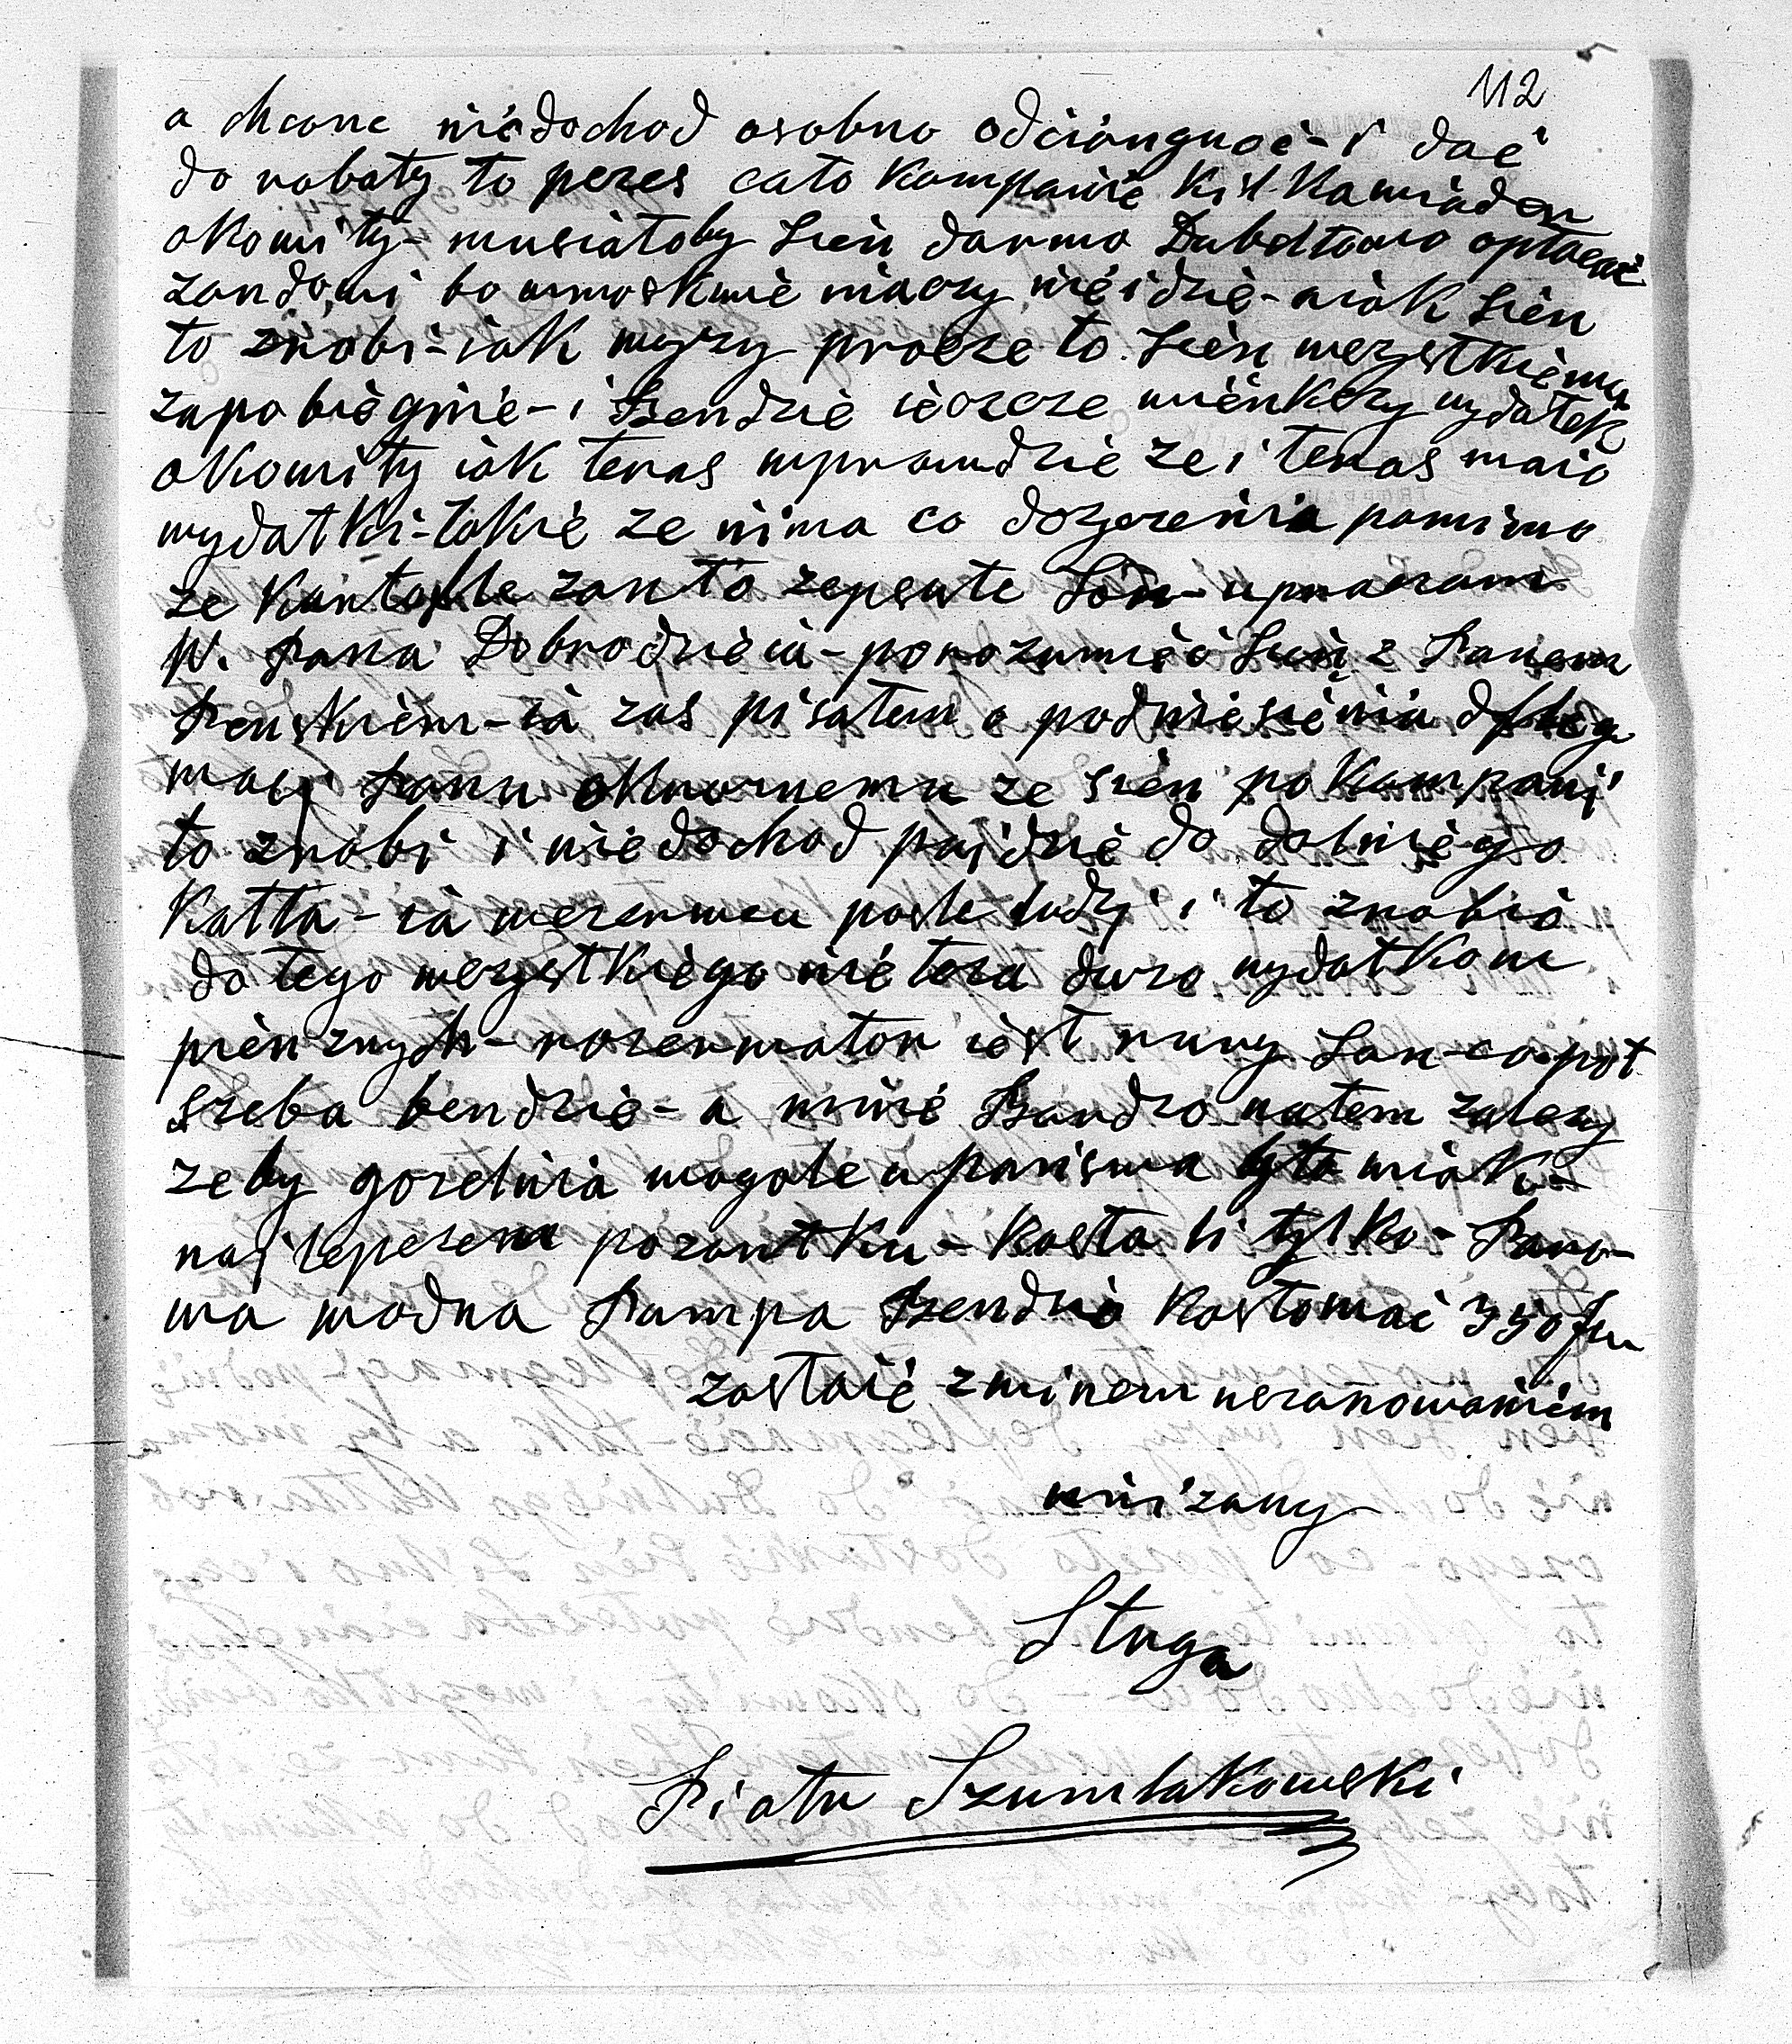 112
a chconc niedochod osobno odciongnoć - i dać
do roboty to przes cało Kompanie Kilkawiader
okowity - musiałoby sien darmo Dubeltowo opłacać
zondowi bo wmoskwie inaczy nie idzie - a iak sien
to zrobi - iak wyzy prosze to sien wszystkiemu
zapobiegnie - i Bendzie ieszcze wienkszy wydatek
okowity iak teras wprawdzie ze i teras maio
wydatki - takie ze nima co dozyczenia pamimo
ze Kartofle zanto zepsute Son - upraszam
W. Pana Dobrodzieia - porozumieć sien z Panem
Penskiem - ia zas pisałem o podniesienia defleg
macj Panu oKnornemu ze sien po Kampanij
to zrobi i niedochod pojdzie do dolniego
Kotła - ia wczerwcu posle ludzj i to zrobio
do tego wszystkiego nie tsza duzo wydatkow
pienznych - rozerwator iest rury Son - co pot
szeba bendzie - a mnie Bardzo natem zalezy
zeby gorelnia wogole u panswa była wiak -
naj lepszem pozontku - Kosta li tylko - Paro -
wa wodna Pampa Bendzie Kostować 350 fr
zostaie zwinem uszanowaniem
unizany
Sługa
Piotr Szumlakowski